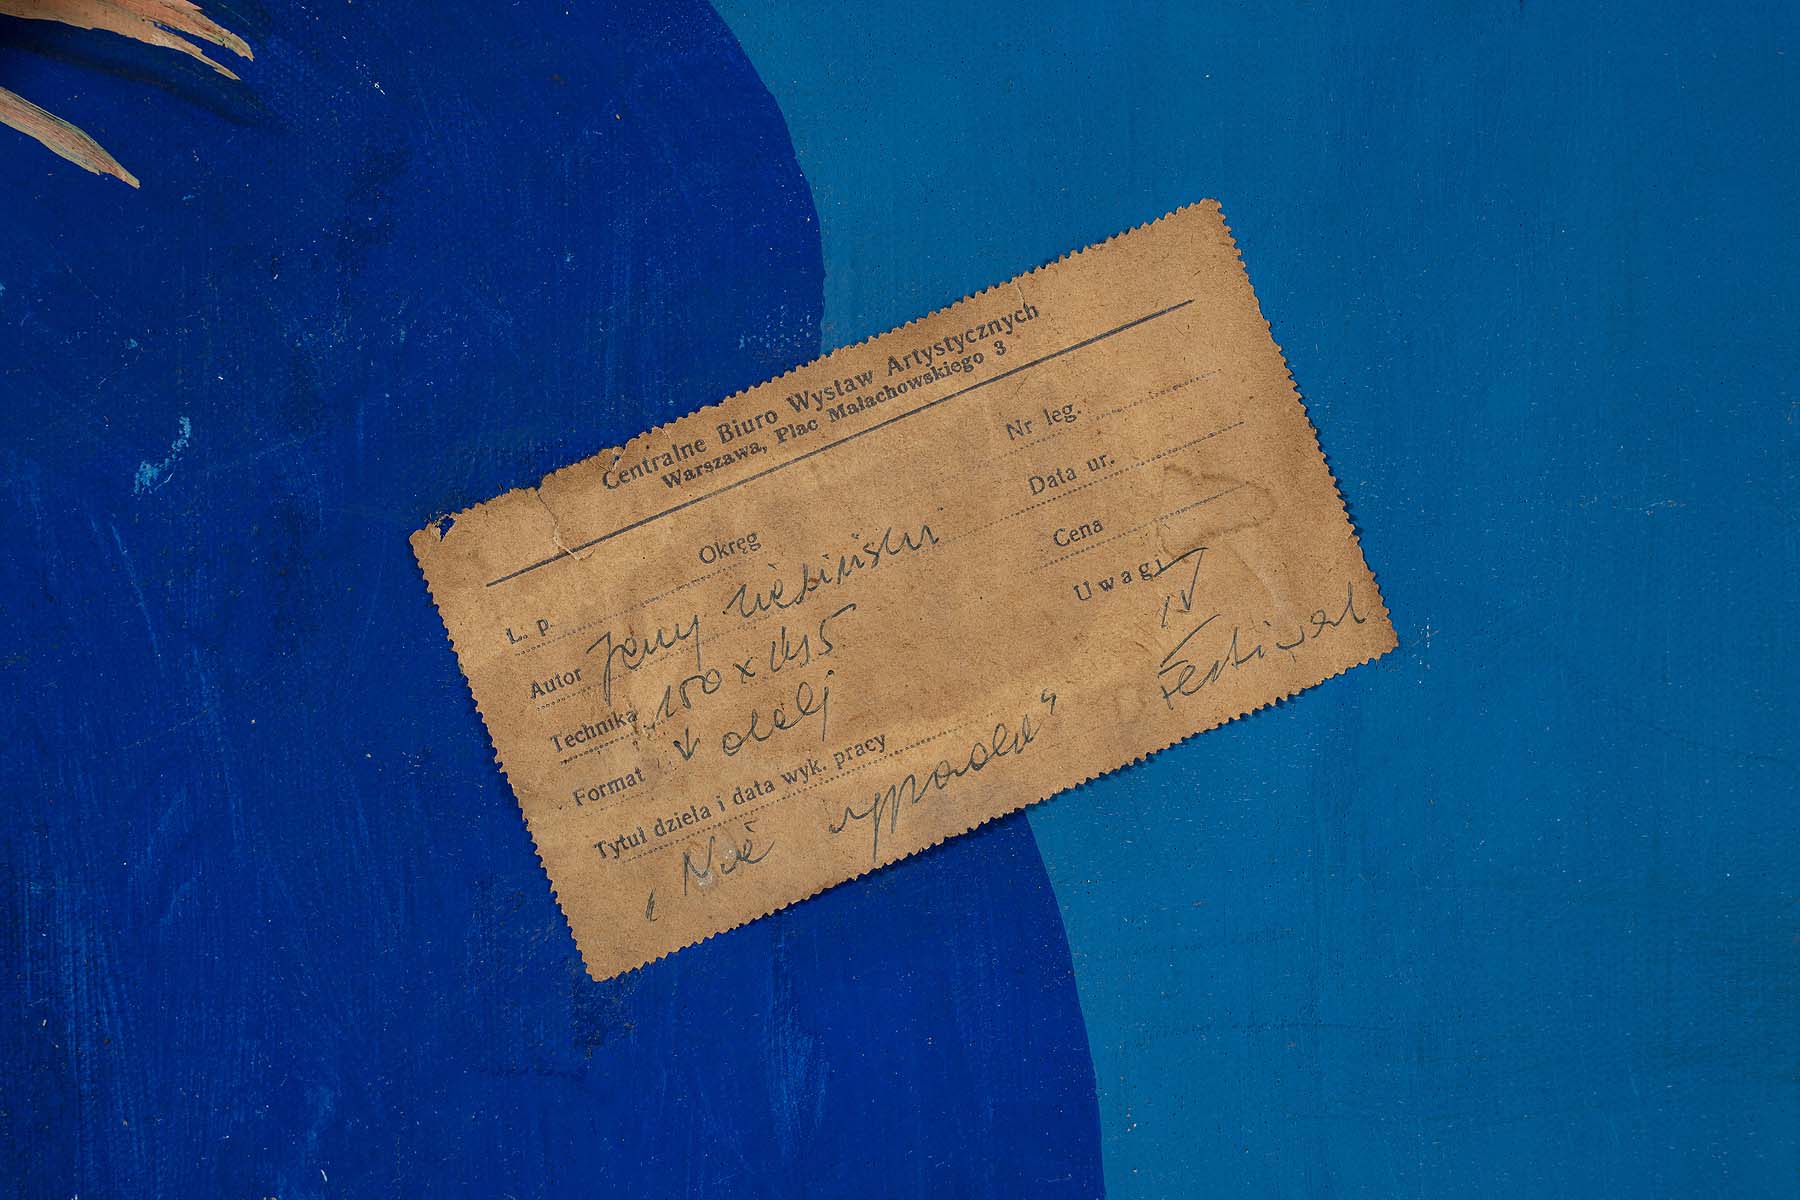 Centralne Biuro Wystaw Artystycznych
Warszawa, Plac Małachowskiego 3
L. p. Okręg Nr leg.
Autor Jerzy Zieliński Data ur.
Technika 150 x 145 Cena
Format olej Uwagi IV
Tytuł dzieła i data wyk. pracy Festiwal
„Nie wypada"